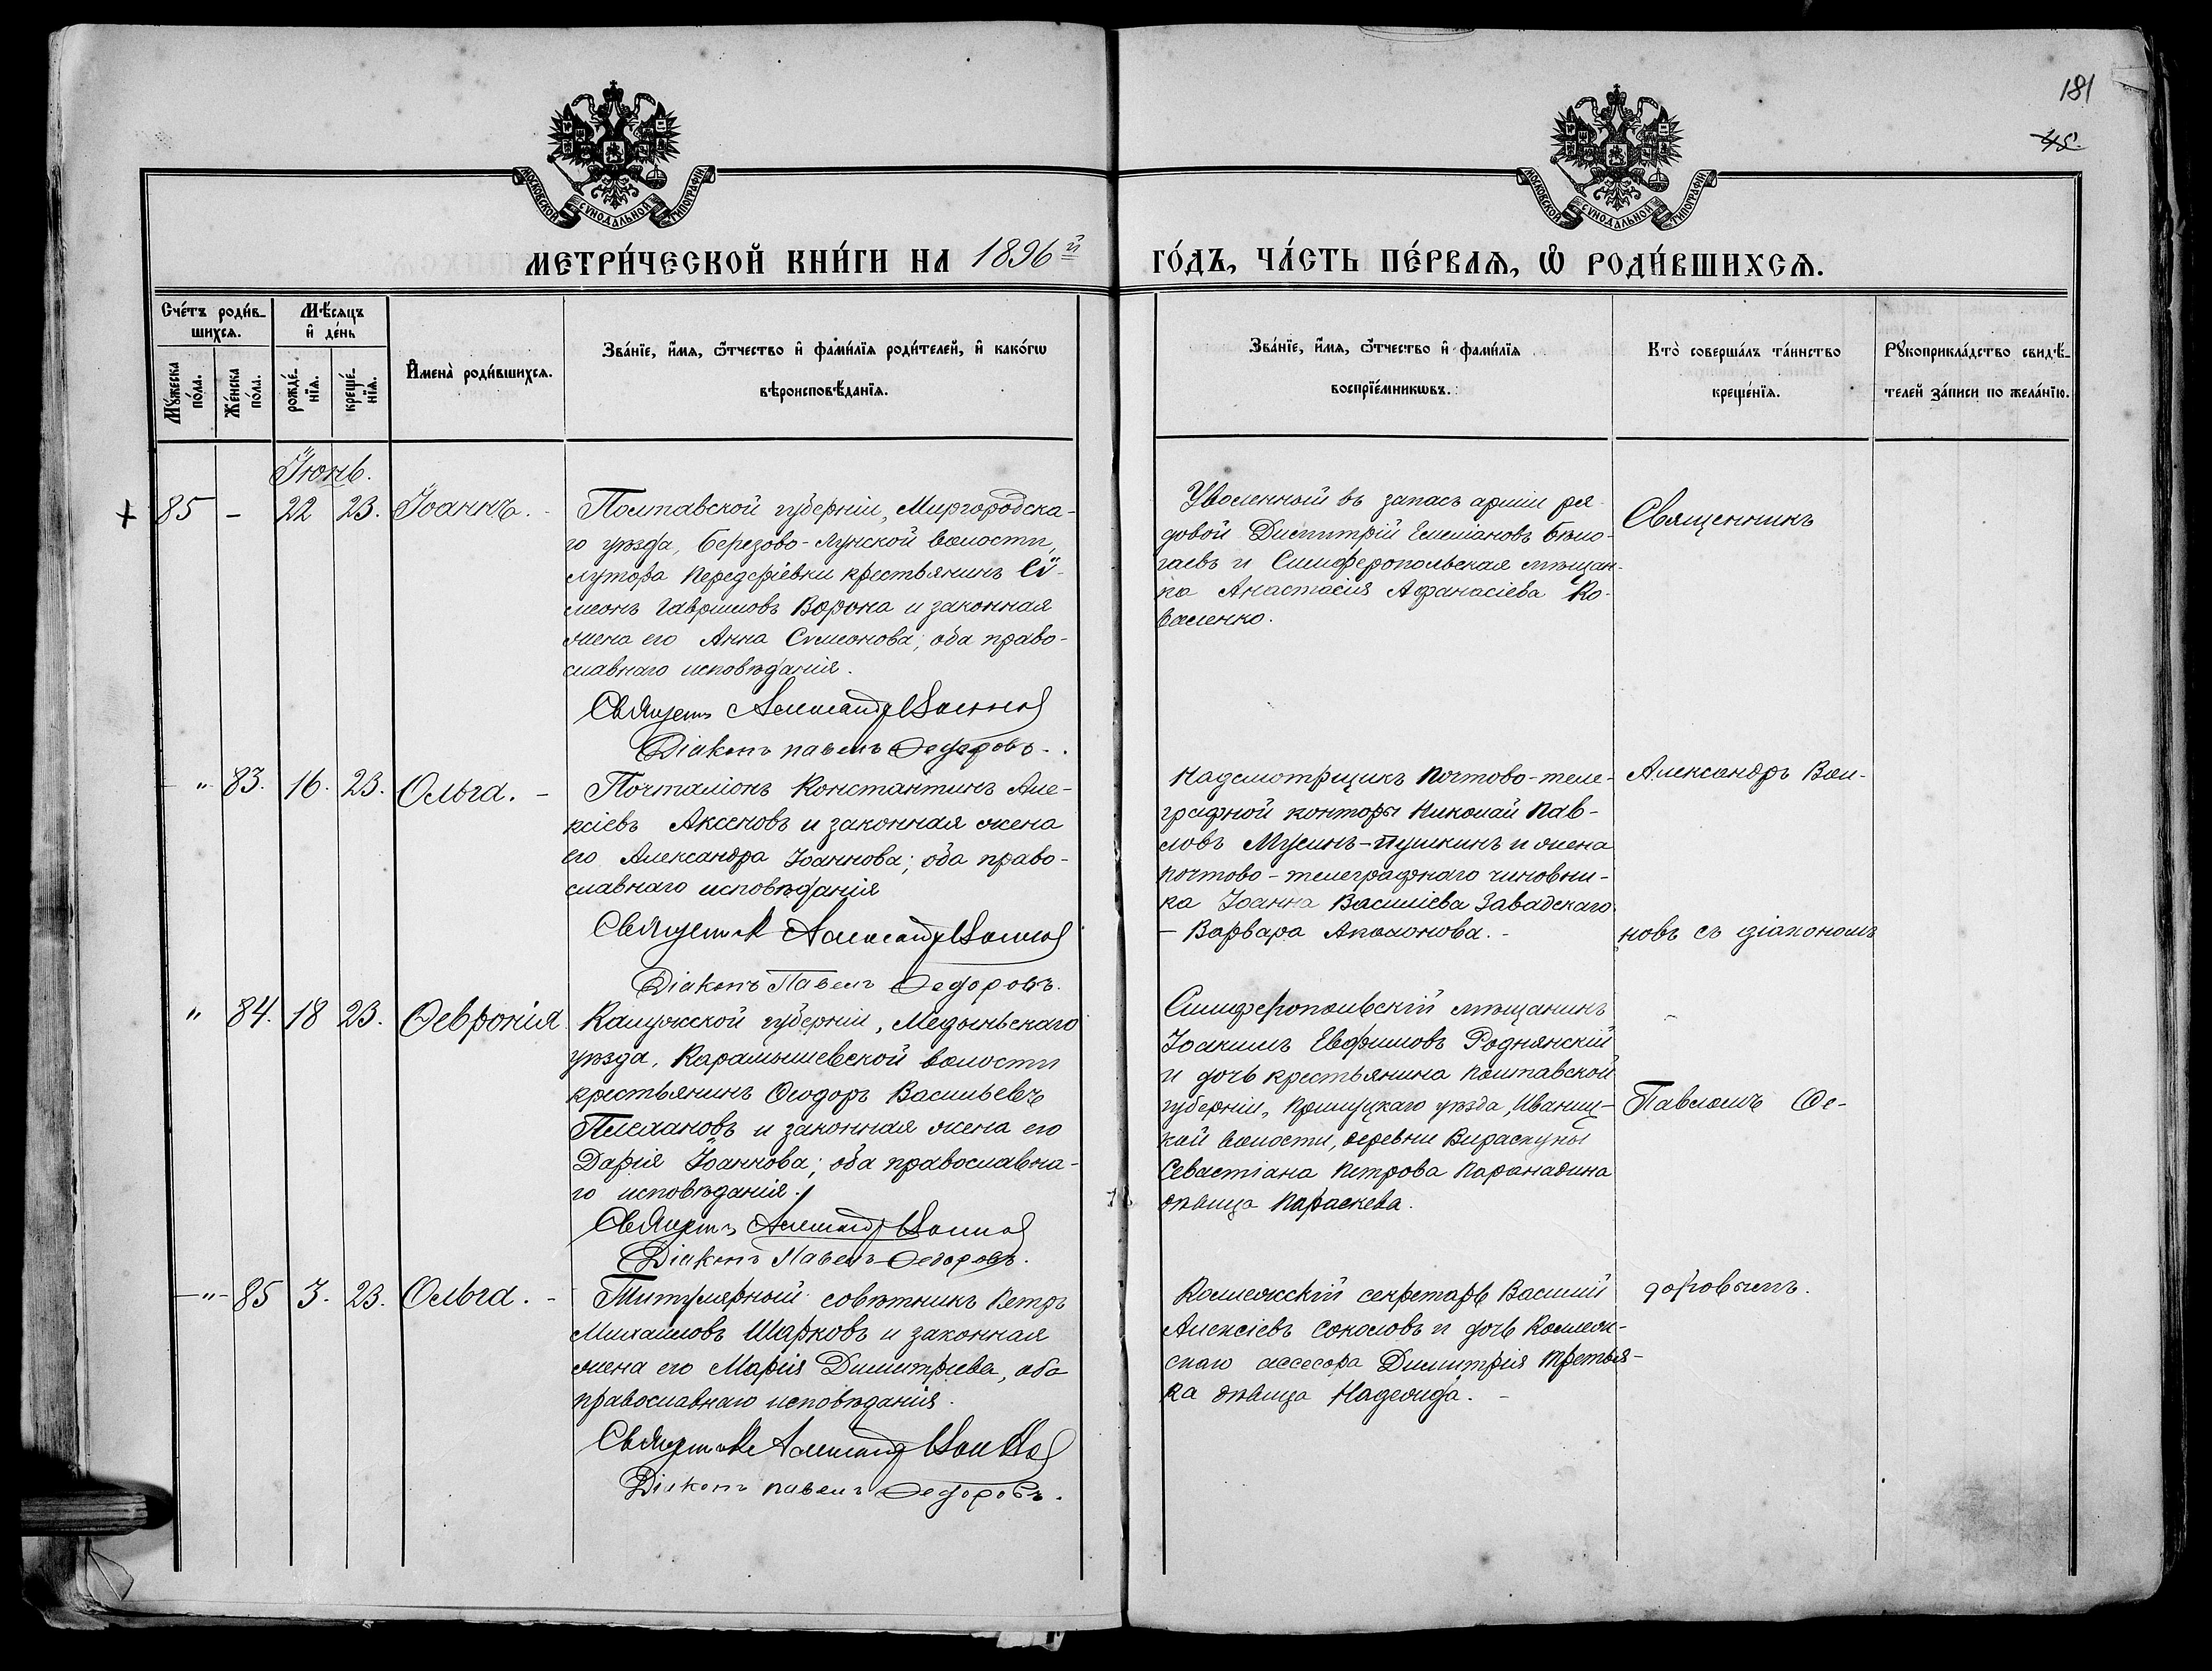 181
45.
МОСКОВСКОЙ СѴНОДАЛЬНОЙ ТИПОГРАФІИ
МОСКОВСКОЙ СѴНОДАЛЬНОЙ ТИПОГРАФІИ
МЕТРИ́ЧЕСКОЙ КНИ́ГИ НА 1896й
ГО́ДЪ, ЧА́СТЬ ПЕ́РВАѦ, Ѽ РОДИ́ВШИХСѦ.
Сче́тъ роди́в-
шихсѧ.
Мꙋ́жеска по́ла.
Же́нска по́ла.
Мѣ́сяцъ
и҆ де́нь
рожде́-нїѧ.
креще́-нїѧ.
И҆мена̀ роди́вшихсѧ.
Зва́нїе, и҆́мѧ, ѻ҆́тчество и҆ фами́лїѧ роди́телей, и҆ како́гѡ
вѣроисповѣ́данїѧ.
Зва́нїе, и҆́мѧ, ѻ҆́тчество и҆ фами́лїѧ
воспрїе́мникѡвъ.
Кто̀ соверша́лъ та́инство
креще́нїѧ.
Рꙋкоприкла́дство свидѣ́-
телей за́писи по жела́нїю.
Іюнь.
+ 85 - 22 23. Іоаннъ.
Полтавской губерніи, Миргородска-
го уѣзда, Березово-Лукской волости,
хутора Передеріевки крестьянинъ Сѵ-
меонъ Гавриловъ Ворона и законная
жена его Анна Симонова; оба право-
славнаго исповѣданія.
Священ. Александръ Воиновъ
Діаконъ Павелъ Ѳедоровъ.
Уволенный въ запасъ арміи ря-
довой Димитрій Емеліановъ Бѣло-
гаевъ и Симферопольская мѣщан-
ка Анастасія Афанасіева Ко-
валенко.
Священникъ
" 83. 16. 23. Ольга. -
Почталіонъ Константинъ Але-
ксіевъ Аксеновъ и законная жена
его Александра Іоаннова; оба право-
славнаго исповѣданія
Священник Александръ Воиновъ
Діаконъ Павелъ Ѳедоровъ.
Надсмотрщикъ почтово-теле-
графной конторы Николай Пав-
ловъ Мусинъ-Пушкинъ и жена
почтово-телеграфнаго чиновни-
ка Іоанна Василіева Завадскаго
- Варвара Аполонова. -
Александръ Вои-
новъ съ діакономъ
" 84. 18 23. Ѳеврονія
Калужской губерніи, Медыньскаго
уѣзда, Карамышевской волости
крестьянинъ Ѳеодоръ Васильевъ
Плехановъ и законная жена его
Дарія Іоаннова; оба православна-
го исповѣданія.
Священ. Александръ Воиновъ
Діаконъ Павелъ Ѳедоровъ.
Симферопольскій мѣщанинъ
Іоакимъ Евфимовъ Роднянскій
и дочь крестьянина Полтавской
губерніи, Прилуцкаго уѣзда, Иваниц-
кой волости, деревни
Севастіана Петрова
дѣвица Параскева.
Павломъ Ѳе-
-"- 85 3. 23. Ольга. -
Титулярный совѣтникъ Петръ
Михаиловъ Шарковъ и законная
жена его Марія Димитріева, оба
православнаго исповѣданія.
Священник Александръ Воиновъ
Діаконъ Павелъ Ѳедоровъ.
Коллежскій секретарь Василій
Алексіевъ Соколовъ и дочь Коллеж-
скаго ассесора Димитрія Третья-
ка дѣвица Надежда. -
доровымъ.